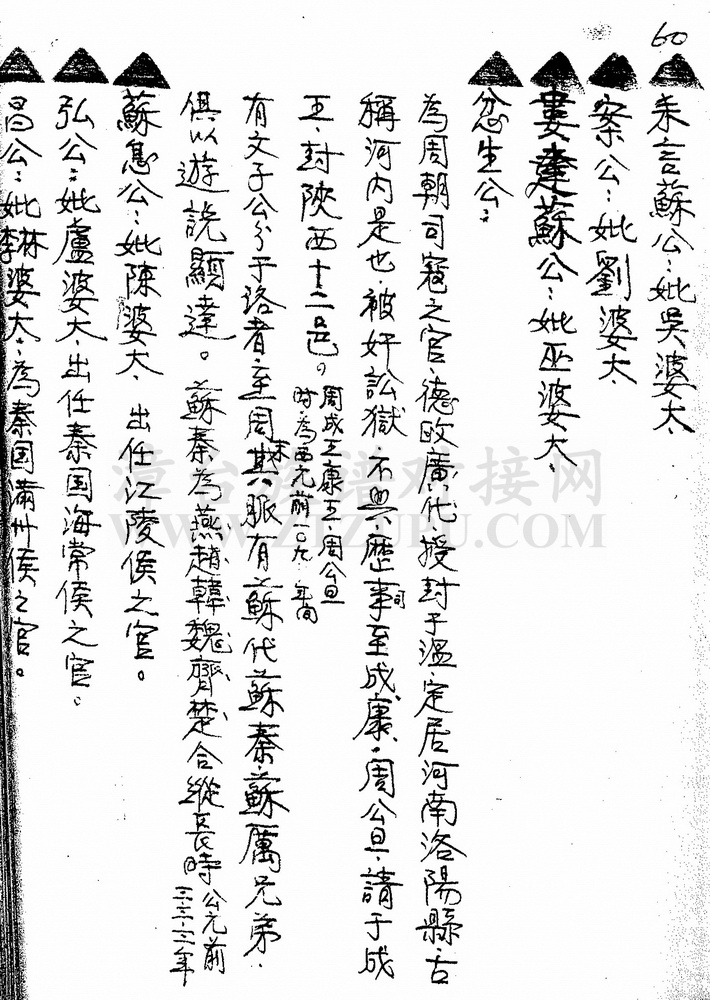 60
朱言蘇公：妣吳婆太、
案公：妣劉婆太、
婁蓬蘇公：妣巫婆太、
忿生公：
為周朝司寇之官、德政廣代、授封于溫定居河南洛陽縣、古
稱河内是也、被奸訟獄、不與歷事至成康、周公旦、請于成
司
王、封陝西十二邑。
周成王康王、周公旦
時為西元前一〇九〇年間
有文子公分于洛者、至周末其脈有蘇代蘇秦、蘇厲兄弟、
俱以遊說顯達。蘇秦為燕趙韓魏齊楚合縱長時
公元前
三三三年
蘇息公：妣陳婆太、出任江陵侯之官。
弘公：妣盧婆太、出任秦国海常侯之官。
昌公：妣林婆太、為秦国滿州侯之官。
李
漳台族譜对接网
WWW.ZTZUPU.COM